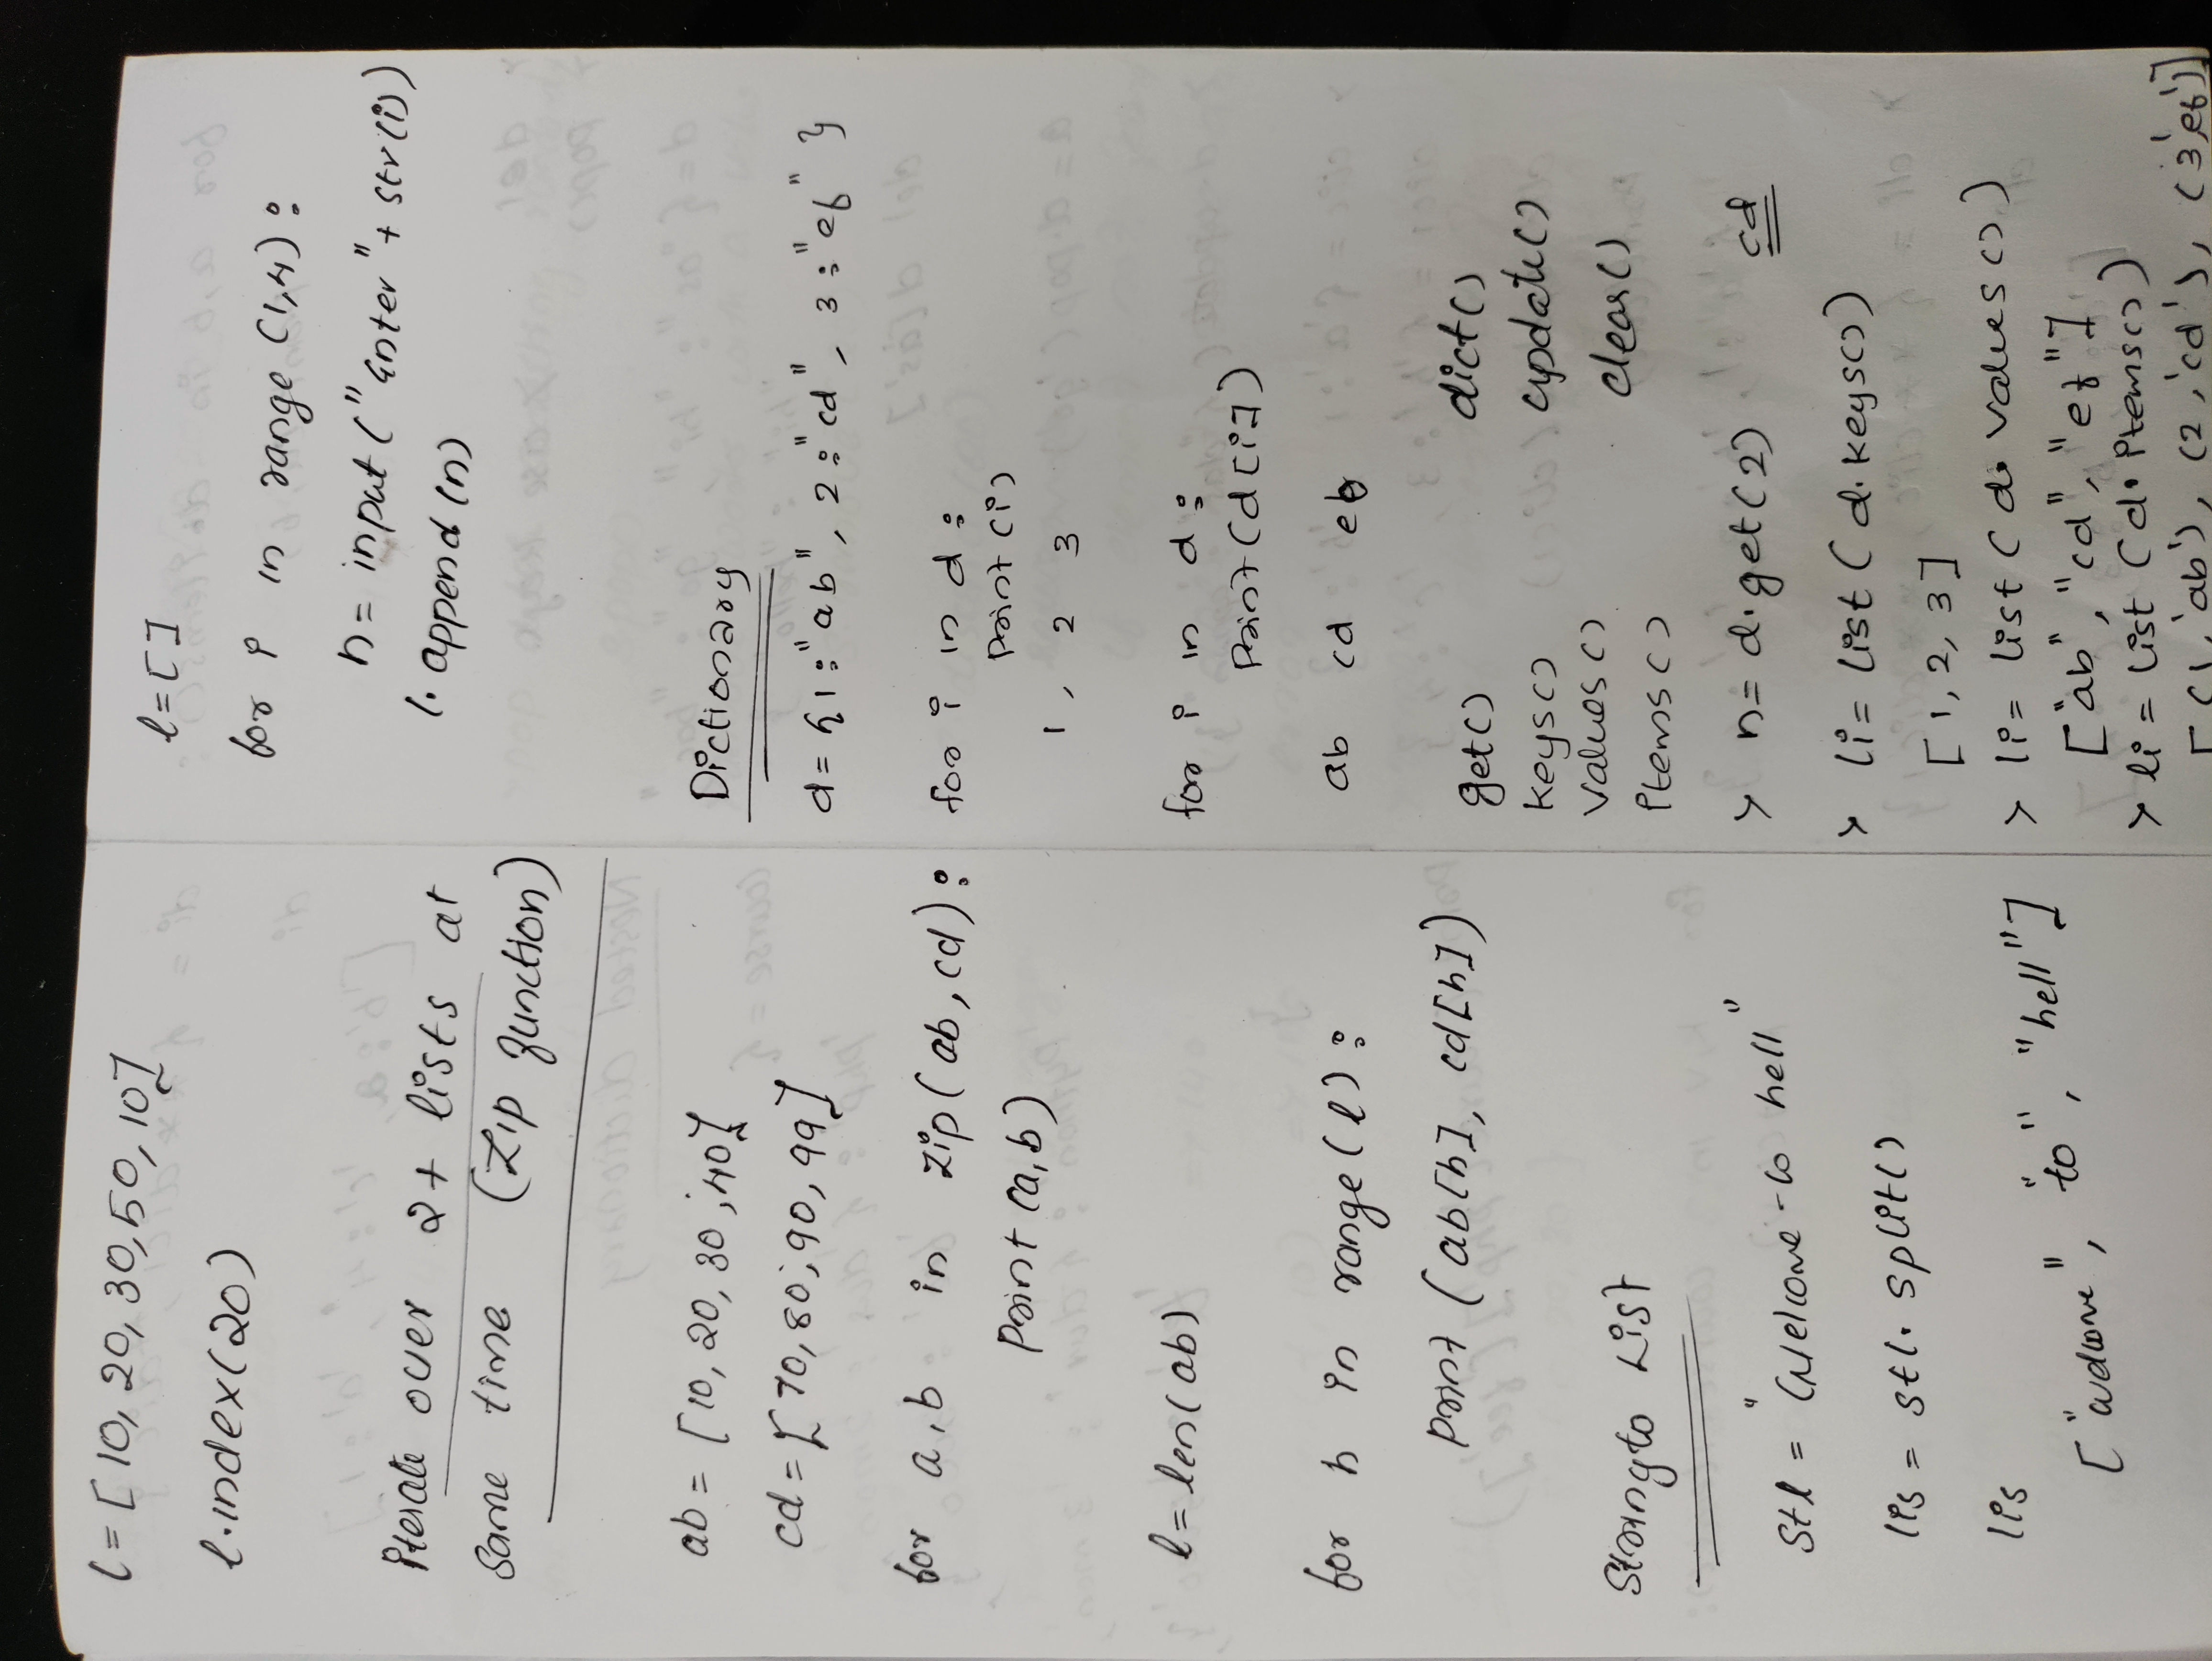 l = [10, 20, 30, 50, 10]
l.index(20)
iterate over 2+ lists at
same time (zip function)
ab = [10, 20, 30, 40]
cd = [70, 80, 90, 99]
for a, b in zip(ab, cd):
print(a, b)
l = len(ab)
for h in range(l):
print (ab[h], cd[h])
String to List
stl = "Welcome to hell"
lis = stl. split()
lis
["welcome", "to", "hell"]
l = []
for i in range (1,4):
n = input ("Enter" + str(i))
l. append (n)
Dictionary
d = {1:"ab", 2:"cd", 3:"ef" }
for i in d:
print (i)
1, 2 3
for i in d:
print(d[i])
ab cd ef
get() dict()
keys() update()
values() clear()
items()
> n = d.get(2) cd
> li = list (d. keys())
[1, 2, 3]
> li = list (d. values())
["ab", "cd", "ef"]
> li = list (d. items())
[(1, 'ab'), (2, 'cd'), (3,'ef')]